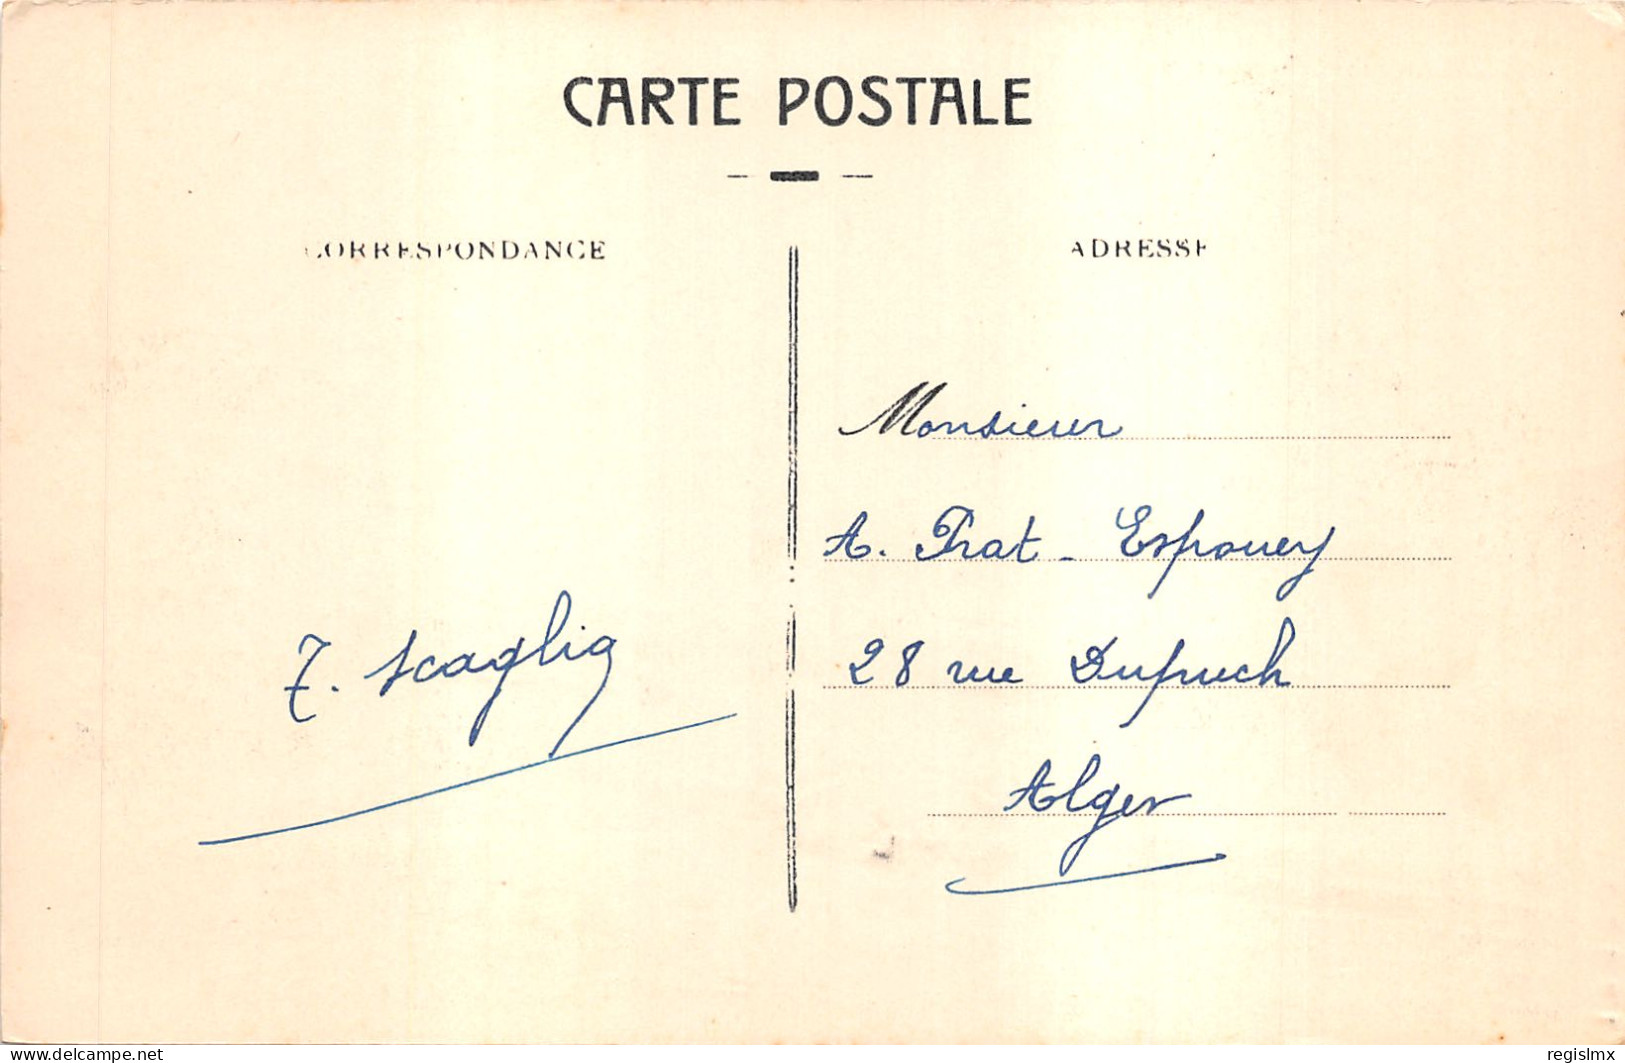 CARTE POSTALE
CORRESPONDANCE
ADRESSE
Monsieur
A. Prat-Espouey
28 rue Dupuch
Alger
J. Scaglia
www.delcampe.net
regislmx